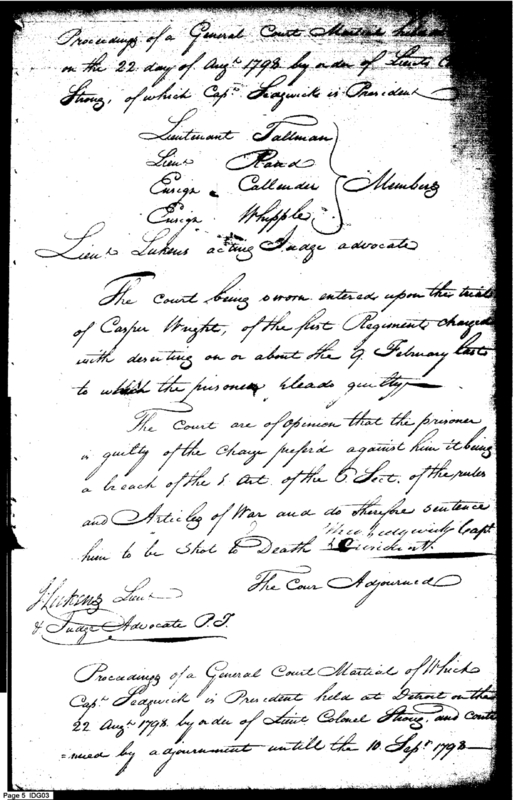 Proceedings of a General Court Martial held
on the 22 day of Augt 1798 by order of Lieut
Strong, of which Capn Sedgwick is President
Lieutenant Tallman
Lieut Rand
Ensign Callender
Members
Ensign Whipple
Lieut Lukens acting Judge advocate
The court being sworn entered upon the trial
of Casper Wright, of the first Regiment charged
with deserting on or about the 9 February last
to which the prisoner pleads guilty
The court are of opinion that the prisoner
is guilty of the charge prefer'd against him it being
a breach of the Art. of the 6 Sect. of the rules
and Articles of War and do therefore sentence
him to be Shot to Death
Sedgwick Capt
President
The Cour Adjourned
Lukens Lieut
& Judge Advocate P.T.
Proceedings of a General Court Martial of Which
Capt Sedgwick is President held at Detroit on the
22 Augt 1798 by order of Lieut Colonel Strong, and conti
=nued by adjournment untill the 10 Sept 1798
Page 5 IDG03